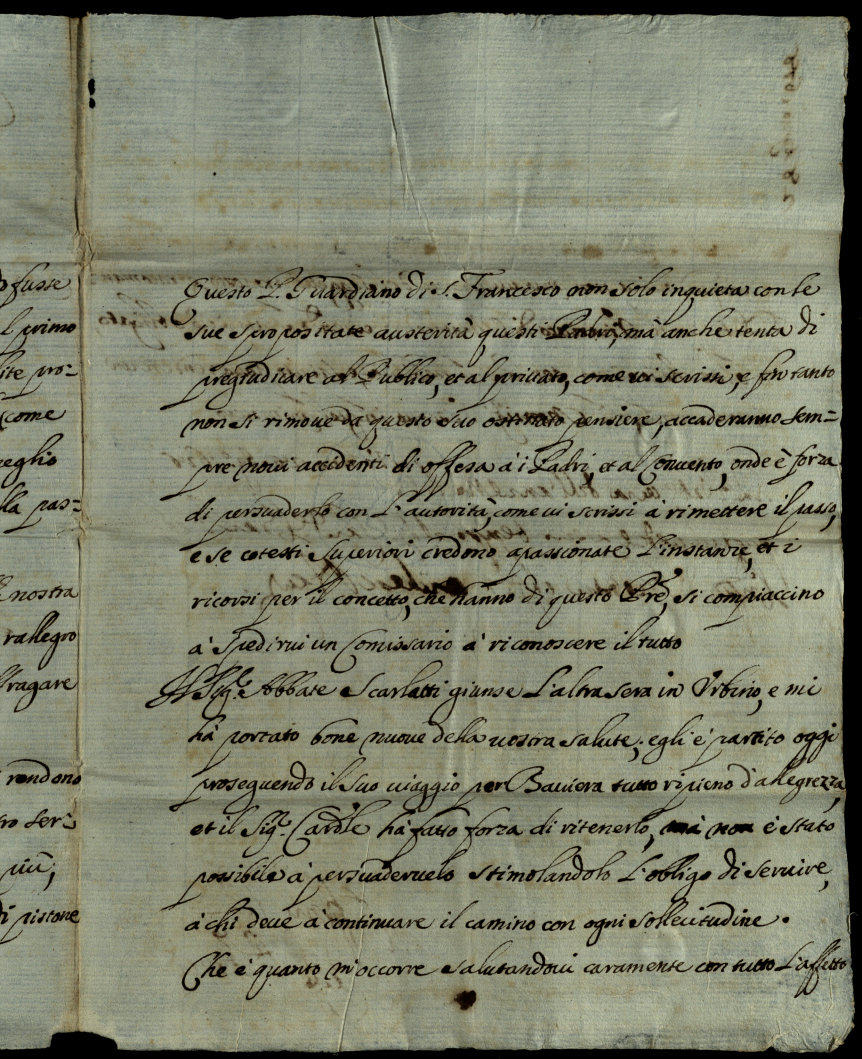 fusse
l primo
ite pro=
(come
veglio
lla pas=
nostra
rallegro
ffragare
rendono
ro ser=
più;
di pistone
Questo P. Guardiano di S. Francesco non solo inquieta con le
sue spropositate austerità questi Padri, mà anche tenta di
pregiudicare al Publico, et al privato, come vi scrissi, e fin tanto
non si rimove da questo suo ostinato pensiere, accaderanno sem=
pre novi accidenti di offesa a i Padri, et al Convento, onde è forza
di persuaderlo con l'autorità, come vi scrissi à rimettere il passo,
e se cotesti Superiori credono apassionate l'instanze, et i
ricorsi per il concetto, che hanno di questo Pre, si compiaccino
à spedirvi un Comissario à riconoscere il tutto
Il Sigr. Abbate Scarlatti giunse l'altra sera in Urbino, e mi
hà portato bone nuove della vostra salute; egli è partito oggi
proseguendo il suo viaggio per Baviera tutto ripieno d'allegrezza,
et il Sigr. Cardle hà fatto forza di ritenerlo, mà non è stato
possibile à persuadervelo stimolandolo l'obligo di servire,
à chi deve à continuare il camino con ogni sollecitudine.
Che è quanto m'occorre salutandovi caramente con tutto l'affetto